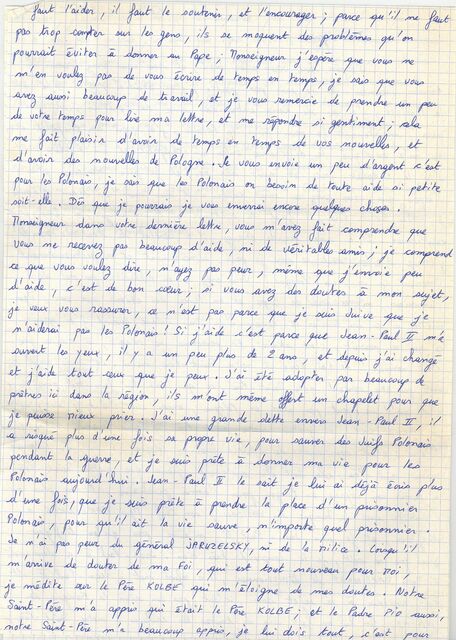 faut l'aider, il faut le soutenir, et l'encourager; parce qu'il ne faut
pas trop compter sur les gens, ils se moquent des problèmes qu'on
pourrait éviter à donner au Pape; Monseigneur j'espère que vous ne
m'en voulez pas de vous écrire de temps en temps, je sais que vous
avez aussi beaucoup de travail, et je vous remercie de prendre un peu
de votre temps pour lire ma lettre, et me répondre si gentiment; cela
me fait plaisir d'avoir de temps en temps de vos nouvelles, et
d'avoir des nouvelles de Pologne. Je vous envoie un peu d'argent c'est
pour les Polonais, je sais que les Polonais on besoin de toute aide si petite
soit-elle. Dès que je pourrais je vous enverrai encore quelques choses.
Monseigneur dans votre dernière lettre, vous m'avez fait comprendre que
vous ne recevez pas beaucoup d'aide, ni de véritables amis; je comprend
ce que vous voulez dire, n'ayez pas peur, même que j'envoie peu
d'aide, c'est de bon cœur; si vous avez des doutes à mon sujet,
je veux vous rassurer, ce n'est pas parce que je suis Juive que je
n'aiderai pas les Polonais! Si j'aide c'est parce que Jean-Paul II m'a
ouvert les yeux, il y a un peu plus de 2 ans, et depuis j'ai changé
et j'aide tout ceux que je peux. J'ai été adopter par beaucoup de
prêtres ici dans la région, ils m'ont même offert un chapelet pour que
je puisse mieux prier. J'ai une grande dette envers Jean-Paul II, il
a risqué plus d'une fois sa propre vie, pour sauver des Juifs Polonais
pendant la guerre, et je suis prête à donner ma vie pour les
Polonais aujourd'hui. Jean-Paul II le sait je lui ai déjà écris plus
d'une fois, que je suis prête à prendre la place d'un prisonnier
Polonais, pour qu'il ait la vie sauve, n'importe quel prisonnier.
Je n'ai pas peur du général JARUZELSKY, ni de la milice. Lorsqu'il
m'arrive de douter de ma Foi, qui est tout nouveau pour moi,
je médite sur le Père KOLBE qui m'éloigne de mes doutes. Notre
Saint-Père m'a appris qui était le Père KOLBE; et le Padre Pio aussi,
notre Saint-Père m'a beaucoup appris, je lui dois tout, c'est pour